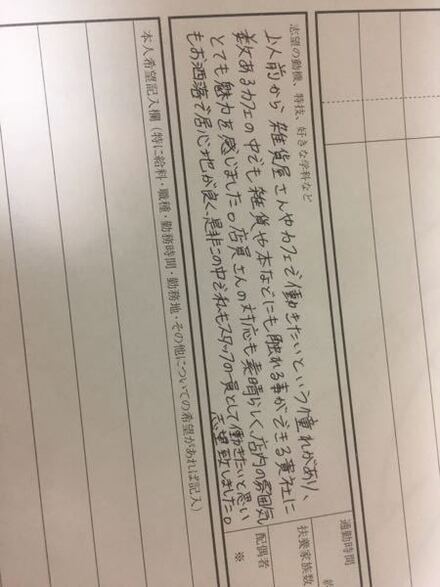 通勤時間
約
扶養家族数
配偶者
※
志望の動機、特技、好きな学科など
以前から雑貨屋さんやカフェで働きたいという憧れがあり、
数あるカフェの中でも雑貨や本などにも触れる事ができる貴社に
とても魅力を感じました。店員さんの対応も素晴らしく、店内の雰囲気
もお洒落で居心地が良く、是非この中で私もスタッフの一員として働きたいと思い
志望致しました。
本人希望記入欄(特に給料・職種・勤務時間・勤務地・その他についての希望があれば記入)